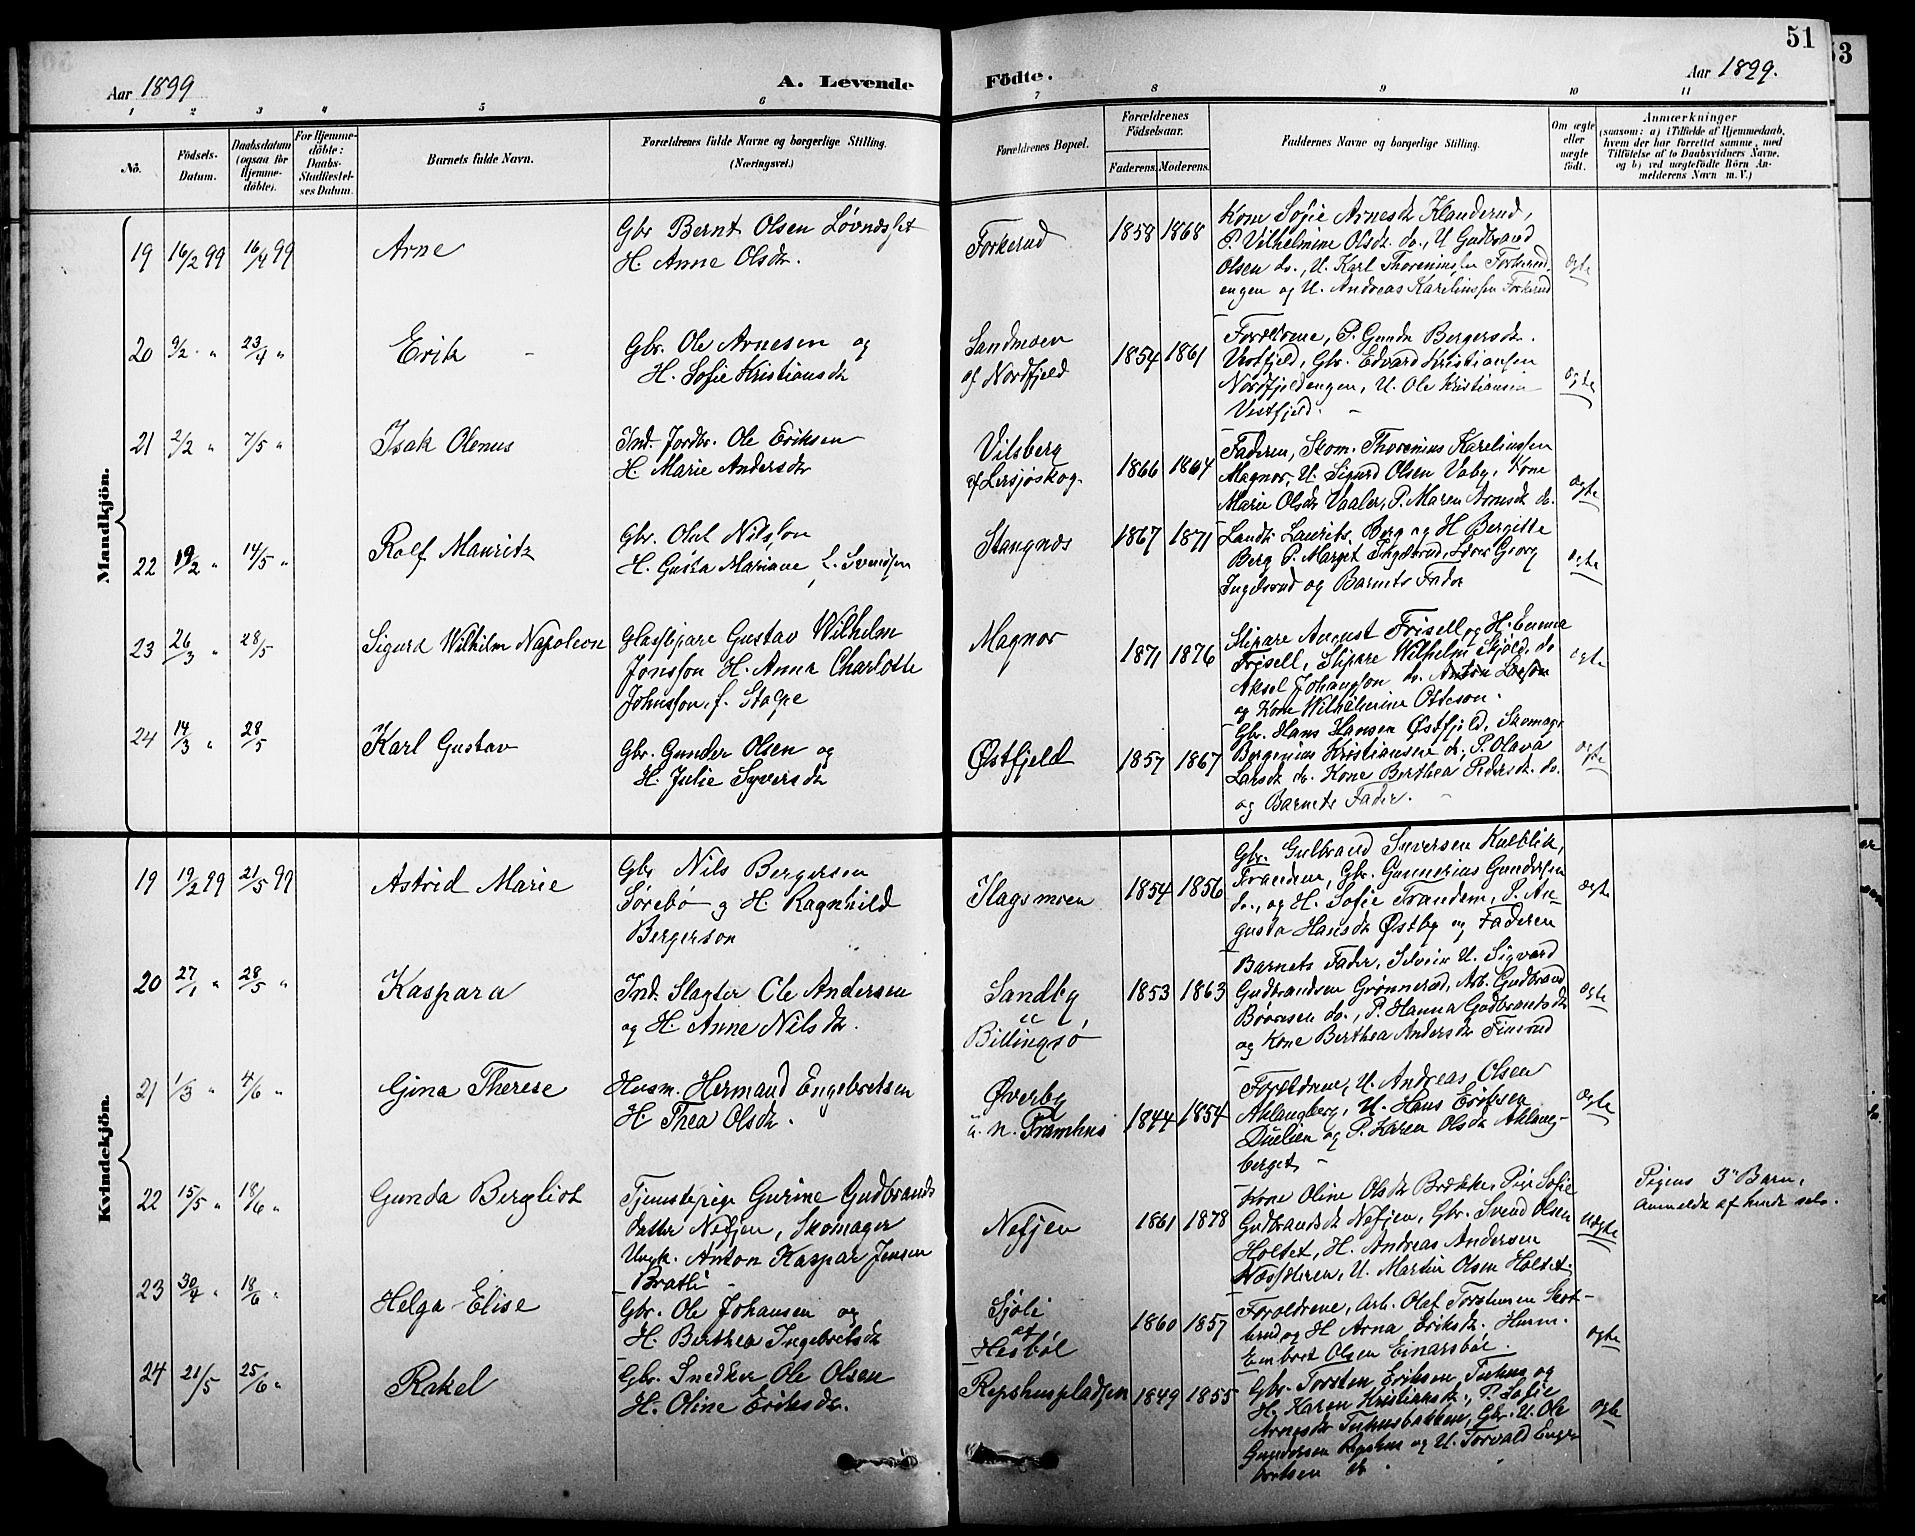 51
53
Aar 1899
A. Levende
Födte.
Aar 1899.
1 2 3 4 5 6 7 8 9 10 11
No.
Födsels-
Datum.
Daabsdatum
(ogsaa for
Hjemme-
döbte).
For Hjemme-
döbte:
Daabs-
Stadfæstel-
ses Datum.
Barnets fulde Navn.
Forældrenes fulde Navne og borgerlige Stilling.
(Næringsvei.)
Forældrenes Bopæl.
Forældrenes
Födselsaar.
Faderens.
Moderens.
Faddernes Navne og borgerlige Stilling.
Om ægte
eller
uægte
födt.
Anmærkninger
(saasom: a) i Tilfælde af Hjemmedaab,
hvem der har forrettet samme, med
Tilföielse af to Daabsvidners Navne,
og b) ved uægtefödte Börn An-
melderens Navn m. V.)
Mandkjön.
19 16/2 99 16/4 99
Arne
Gbr Bernt Olsen Løvnæsset
H. Anne Olsdr.
Forkerud
1858 1868
Kone Sofie Arnesdr Klanderud,
P. Vilhelmine Olsdr. do., U Gudbrand
Olsen do., U. Karl Thoreniussen Forkerud,
engen og U. Andreas Kareliussen Forkerud
ægte
20 9/2 " 23/4 "
Erik
Gbr. Ole Arnesen og
H. Sofie Kristiansdr
Sandmoen
af Nordfjeld
1854 1861
Forældrene, P. Gunda Bergersdr.
Vestfjeld, Gbr. Edvard Kristiansen
Nordfjeldengen, U. Ole Kristiansen
Vestfjeld.
ægte
21 2/2 " 7/5 "
Isak Olenus
Ind. Jordbr. Ole Eriksen
H. Marie Andersdr
Vilsberg
af Lersjøskog
1866 1864
Faderen, Skom. Thorenius Kareliussen
Magnor, U. Sigurd Olsen Vaby, Kone
Marie Olsdr Vaaler, P. Maren Arnesdr do.
ægte
22 19/2 " 14/5 "
Rolf Mauritz
Gbr. Olat Nilsson
H. Gusta Mariane f. Svendsen
Stangnæs
1867 1871
Landh. Laurits Berg og H Bergitte
Berg P. Marget Ingelsrud, Georg
Ingelsrud og Barnets Fader
ægte
23 26/3 " 28/5
Sigurd Wilhelm Napoleon
Glasslipare Gustav Wilhelm
Jonsson H. Anna Charlotte
Johnsson, f. Stape
Magnor
1871 1876
Slipare August Frisell og H. Emma
Frisell, Slipare Wilhelm Skjöld, do
Aksel Johansson do.
og Kone Wilhelmine Otteson.
ægte
24 14/3 " 28/5
Karl Gustav
Gbr. Gunder Olsen og
H. Julie Syversdr
Østfjeld
1857 1867
Gbr. Hans Hansen Østfjeld, Skomager
Bergenius Kristiansen do., P. Olava
Larsdr do. Kone Berthea Pedersdr. do.
og Barnets Fader.
ægte
Kvindekjön.
19 19/2 99 21/5 99
Astrid Marie
Gbr Nils Bergersen
Sørebø og H. Ragnhild
Bergerson
Hagsmoen
1854 1856
Gbr. Gulbrand Syversen Kulblik,
Trandem, Gbr. Gunnerius Gundersen
do., og H. Sofie Trandem, P. Au-
gusta Hansdr Østby og Faderen
ægte
20 27/1 " 28/5 "
Kaspara
Ind. Slagter Ole Andersen
og H. Anne Nilsdr.
Sandby
u
Billingsø
1853 1863
Barnets Fader, Selveier U. Sigvard
Gudbrandsen Grønnerud, Arb. Gudbrand
do., P. Hanna Gudbrandsdr
og Kone Berthea Andersdr Finsrud
ægte
21 1/3 " 4/6 "
Gina Therese
Husm. Hermand Engebretsen
H. Thea Olsdr.
Øverby
u. N. Framhus
1844 1854
Forældrene, U. Andreas Olsen
Aklangberg, U. Hans Eriksen
Duelien og P. Karen Olsdr Aklang-
berget
ægte
22 15/5 " 18/6 "
Gunda Bergliot
Tjenestepige Gurine Gudbrands
datter Nefjen, Skomager
Ungk. Anton Kaspar Jensen
Bratli
Nefjen
1861 1878
Kone Oline Olsdr Brække, Pige Sofie
Gudbrandsdr Nefjen, Gbr. Svend Olsen
Holtet, H. Andreas Andersen
U. Martin Olsen Holtet.
uægte
Pigens 3" Barn,
Anmeldt af hende selv.
23 30/4 18/6 "
Helga Elise
Gbr. Ole Johansen og
H. Berthea Ingebretsdr
Sjøli
af
Hesbøl
1860 1857
Forældrene, Arb. Olaf Torstensen Skot-
terud og H Arna Eriksdr. Husm.
Embret Olsen Einarsbøl.
ægte
24 21/5 25/6 "
Rakel
Gbr. Snedker Ole Olsen
H. Oline Eriksdr.
Repshuspladsen
1849 1855
Gbr. Torsten Eriksen Tuhus og
H. Karen Kristiansdr., P. Sofie
Arnesdr Tuhusbakken, Gbr. U. Ole
Gundersen Repshus og U. Torvald Enge
bretsen
ægte